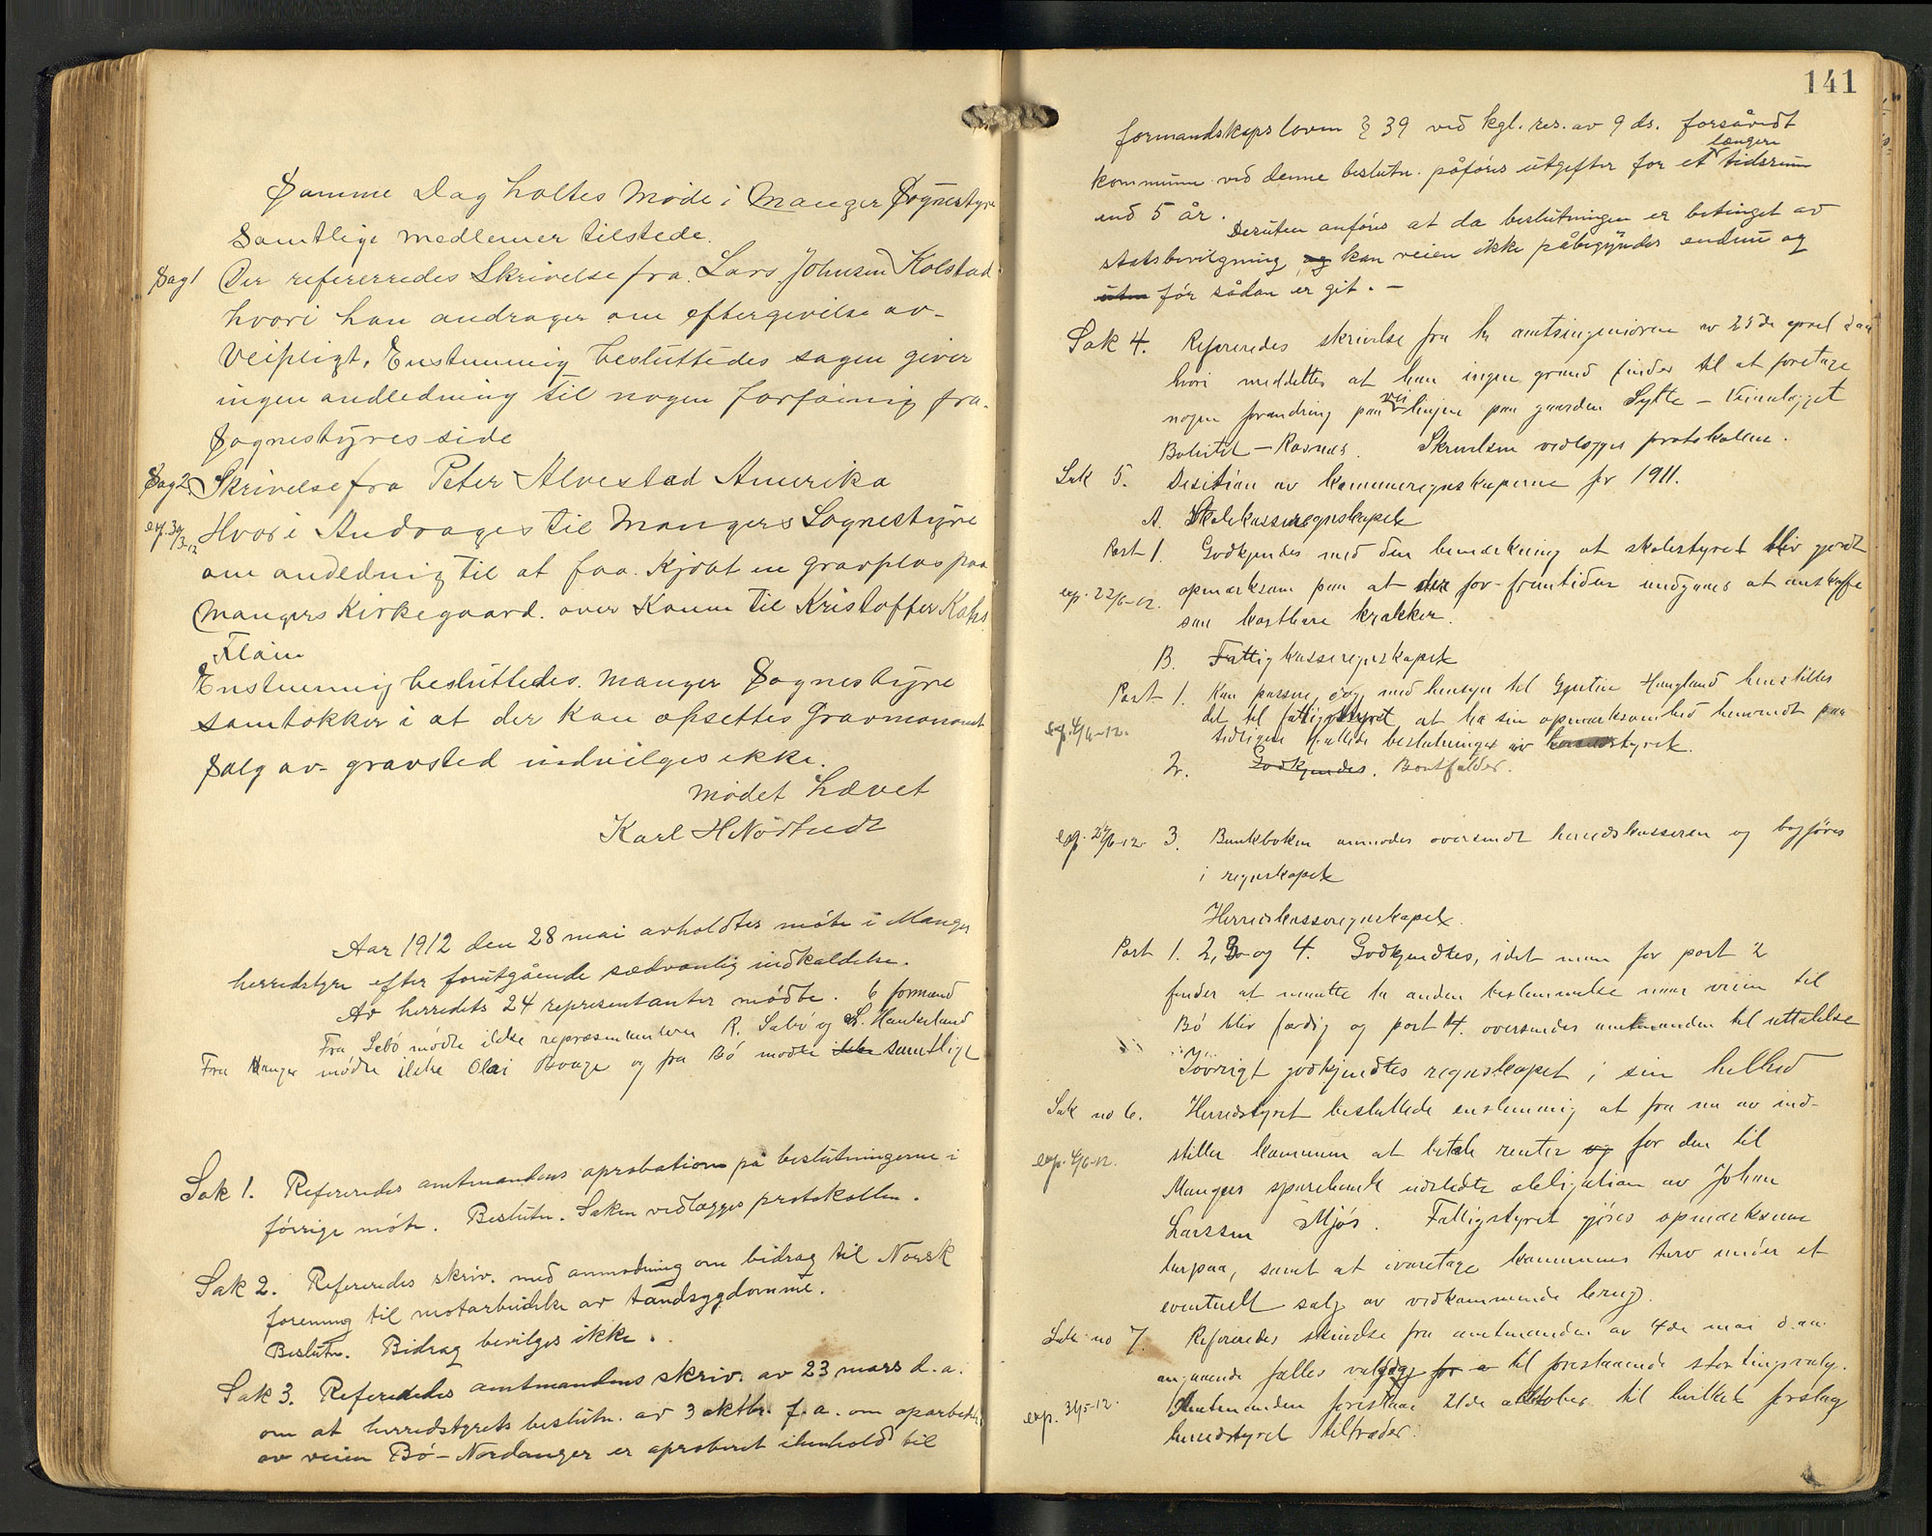 Samme Dag holtes Møde i Manger Sognestyre
Samtlige medlemer tilstede.
Sag 1 Der refererredes Skrivelse fra Lars Johnsen Kolstad
hvori han andrager om eftergivelse av
Veipligt. Enstemmig besluttedes sagen giver
ingen andledning til nogen forføinig fra
Sognestyres side
Sag 2 Skrivelse fra Peter Alvestad Amerika
Hvori Andrages til Mangers Sognestyre
om andlednig til at faa Kjøbt en gravplas paa
Mangers Kirkegaard. over Konen til Kristoffer
Enstemmig besluttedes. Manger Sognestyre
samtøkker i at der kan opsettes Gravmonument
Salg av gravsted indvilges ikke.
Mødet Hævet
Karl H Nødtvedt
Aar 1912 den 28 mai avholdtes møte i Manger
herredstyre efter forutgående sædvanlig indkaldelse.
Av herredets 24 repræsentanter mødte. 6 formænd
Fra Sebø mødte ikke repræsentanterne R. Sæbø og L. Haukeland
Fra Manger mødte ikke Olai Boge og fra Bø mødte ikke samtlige
Sak 1. Refereredes amtmandens aprobation på beslutningerne i
førrige møte. Beslutn. Saken vedlægges protokollen.
Sak 2. Refereredes skriv. med anmodning om bidrag til Norsk
forening til motarbeidelse av tandsygdomme.
Beslutn. Bidrag bevilges ikke.
Sak 3. Refereredes amtmandens skriv. av 23 mars d.a.
om at herredstyrets beslutn. av 3 oktbr. f.a. om oparbeidelse
av veien Bø - Nordanger er aproberet i henhold til
141
formandskapsloven § 39 ved kgl. res. av 9 ds. forsåvidt
længere
kommunen ved denne beslutn. påføres utgifter for et tidsrum
end 5 år.
Desuten anføres at da beslutningen er betinget av
statsbevilgning og kan veien ikke påbegyndes endnu og
uten før sådan er git. -
Sak 4. Refereredes skrivelse fra hr amtsingeniøren av 25de april d.aa.
hvori meddeltes at han ingen grund finder til at foretage
nogen forandring paa veilinjen paa gaarden Sylte - Veianlægget
Bolstad - Rosnes. Skrivelsen vedlægges protokollen.
Sak 5. Desision av kommuneregnskaperne for 1911.
A. Skolekasseregnskapet
Post 1. Godkjendes med den bemerkning at skolestyret blir gjort
exp. 22/6-12. opmerksom paa at der for fremtiden undgaaes at anskaffe
saa kostbare krakker.
B. Fattigkasseregnskapet
Post 1. Kan passere, dog med hensyn til Gjertine Haugland henstilles
det til fattigstyret at ha sin opmerksomhed henvendt paa
exp. 4/6-12. tidligere fattede beslutninger av herredsstyret.
2. Godkjendes. Bortfalder.
3. Bankboken anmodes oversendt herredskasseren og bogføres
i regnskapet
Herredskasseregnskapet.
Post 1. 2, 3 og 4. Godkjendtes, idet man for post 2
finder at maatte ta anden bestemmelse naar veien til
Bø blir færdig og post 4. oversendes amtmanden til uttalelse
Iøvrigt godkjendtes regnskapet i sin helhed
Sak no 6. Herredstyret besluttede enstemmig at fra nu av ind-
exp. 4/6-12. stiller kommunen at betale renter og for den til
Mangers sparebank utstedte obligation av Johan
Larssen Mjøs. Fattigstyret gjøres opmerksom
herpaa, samt at ivaretage kommunens tarv under et
eventuelt salg av vedkommende brug.
Sak no 7. Refereredes skrivelse fra amtmanden av 4de mai d.aa.
angaaende fælles valgdag for a til forestaaende stortingsvalg.
exp. 31/5-12. Amtmanden foreslaar 21de oktober til hvilket forslag
herredstyret tiltræder.